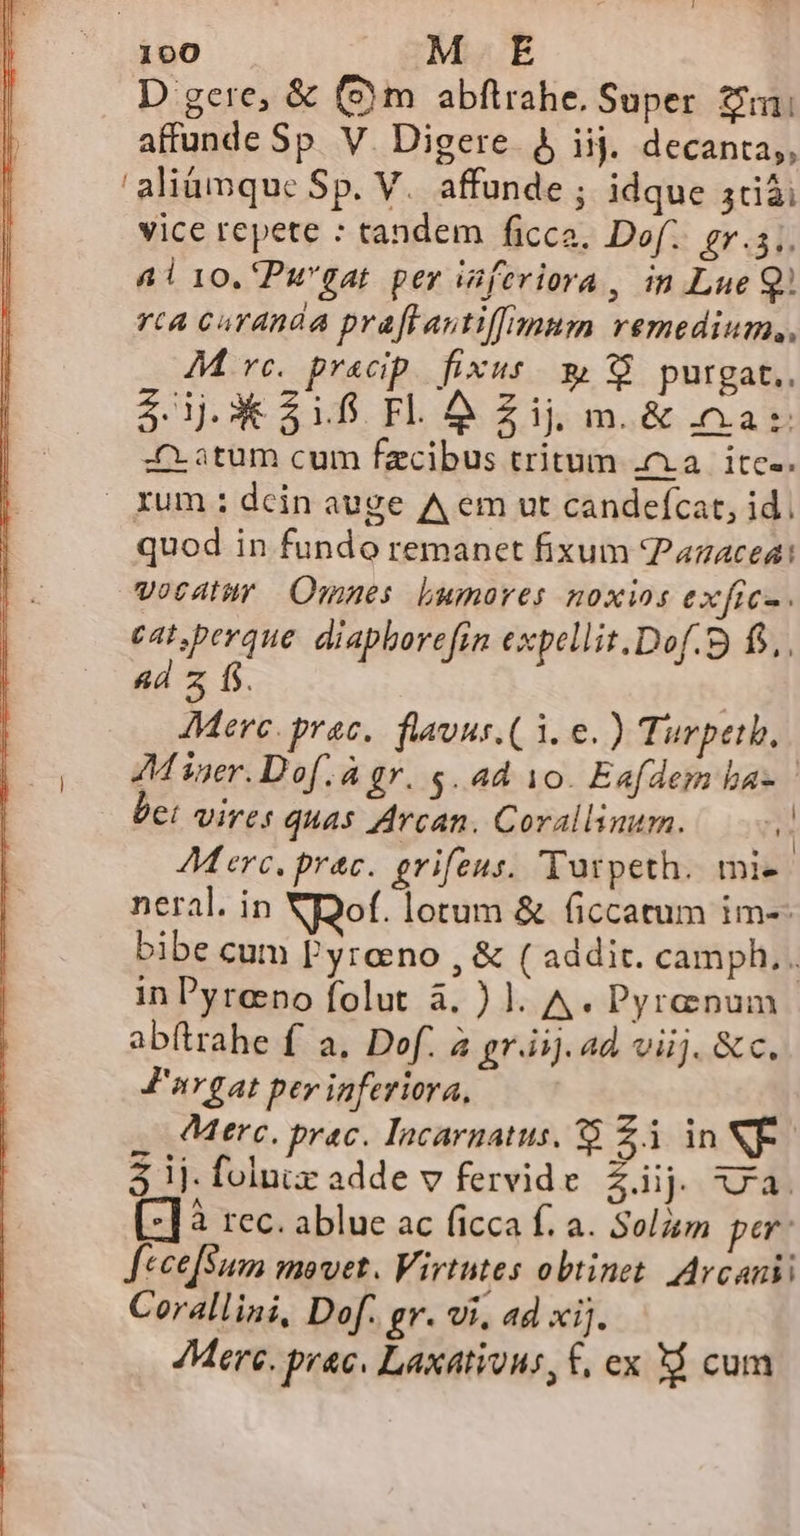 100 M E
D gere, & (⊙)m abſtrahe. Super ☿m
affunde Sp. V. Digere ♄ iij. decanta,
aliúmque Sp. V. affunde ; idque 3tiâ
vice repete : tandem ſicca. Doſ. gr. 3.
ad 10. Purgat per inferiora, in Lue
curanda præſtantiſſimum remedium,
M rc. præcip fixus ☿ purgat.
℥ ij. ✶ ℥ i.ß Fl. ℥ ij. m. & ♎a :
♎atum cum fæcibus tritum ♎a ite-
rum : dein auge △ em ut candeſcat, id
quod in fundo remanet fixum Panacea
vocatur Omnes humores noxios exſic-
cat, perque diaphoreſin expellit. Doſ. ℈ ß,
ad ʒ ß.
Merc. præc. flavus. ( i. e. ) Turpeth.
Miner. Doſ. à gr. 5. ad 10. Eaſdem ha-
bet vires quas Arcan. Corallinum.
Merc. præc. griſeus. Turpeth. mi-
neral. in of. lotum & ſiccatum im-
bibe cum Pyrœno , & ( addit. camph.
in Pyrœno ſolut ã. ) l. △. Pyrœnum
abſtrahe ſ a. Doſ. à gr. iij. ad viij. &c.
Purgat per inferiora.
Merc. præc. Incarnatus. ☿ ℥.i in 🜅
℥ ij. ſolutæ adde v fervide ℥.iij.
à rec. ablue ac ſicca ſ. a. Solùm per
ſeceſſum movet. Virtutes obtinet Arcani
Corallini, Doſ. gr. vi, ad xij.
Merc. præc. Laxativus, ſ, ex ☿ cum